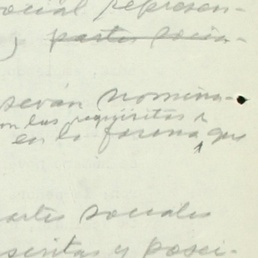 social represen-
y partes socia-
serán nomina-
con los requisitos
en la forma que
partes sociales
suscritas y posei-